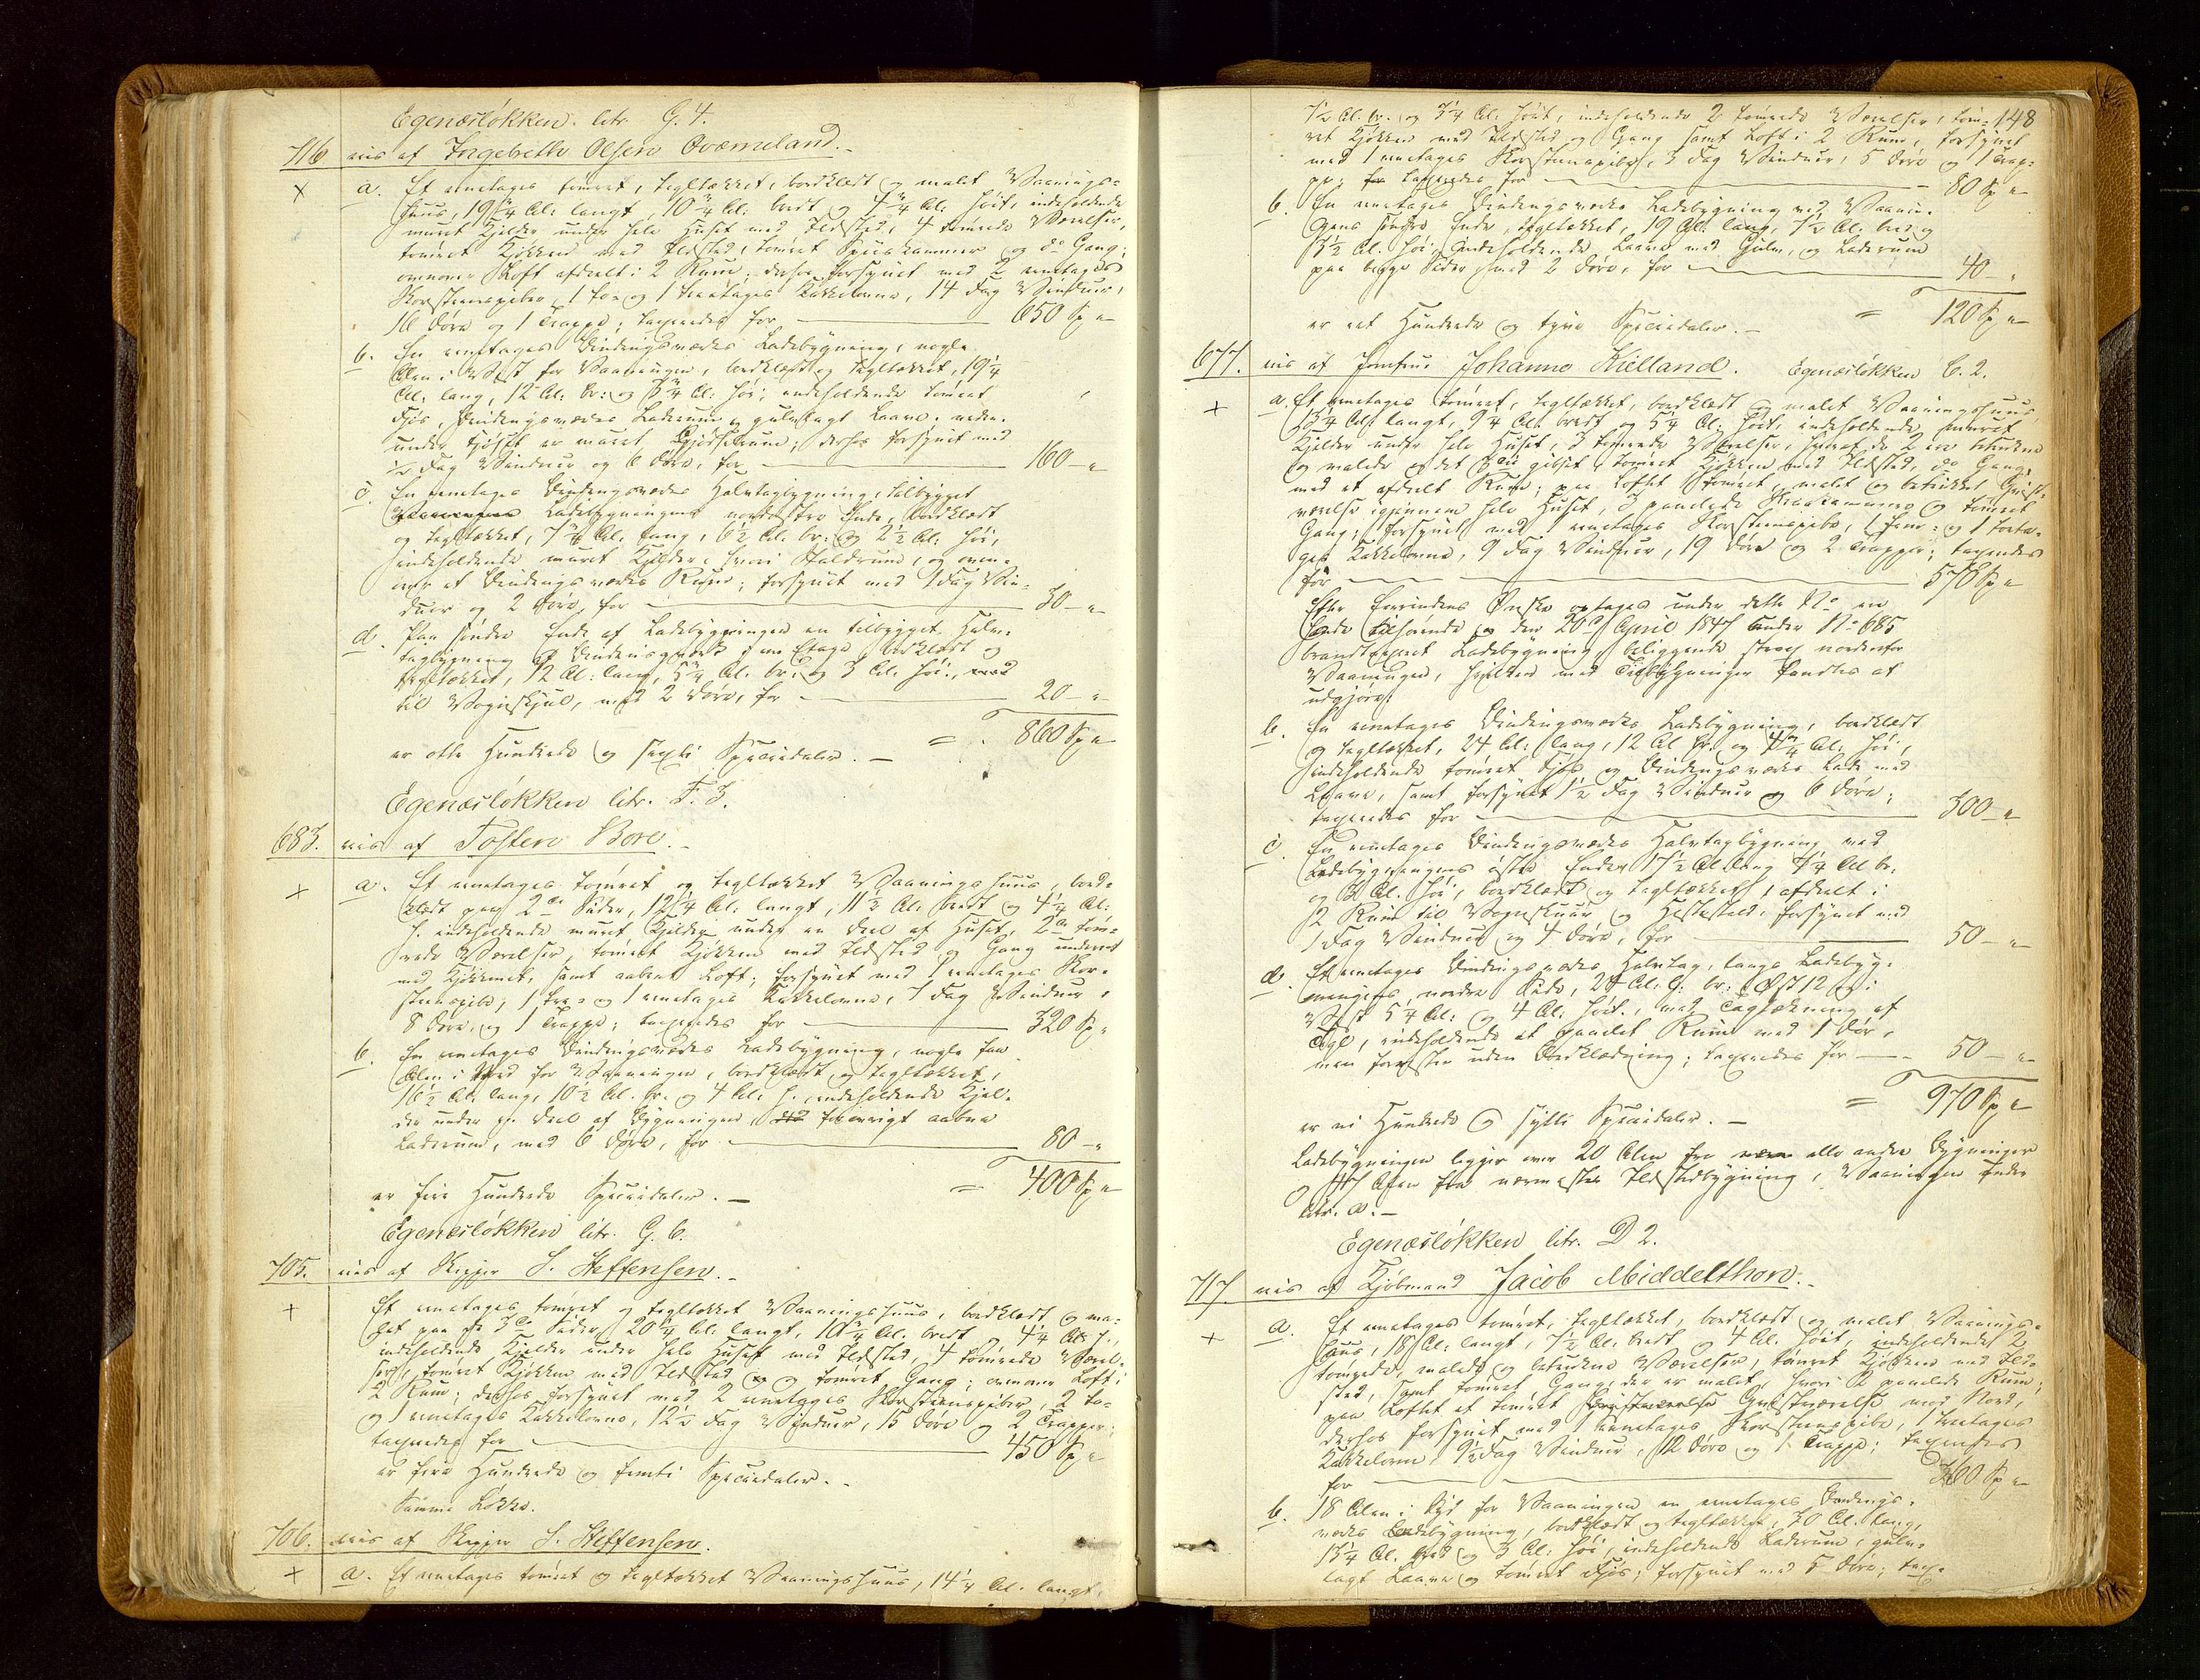 Egenæsløkken litr. G. 4.
716. eies af Ingebreth Olsen Qværneland.
a. Et eenetages tømret, tegltækket, bordklædt og malet Vaanings-
huus, 19 3/4 Al. langt, 10 3/4 Al. bredt og 4 3/4 Al. høit, indeholdende
muret Kjelder under hele Huset med Ildsted, 4 tømrede Værelser,
tømret Kjøkken med Ildsted, tømret Spiiskammer og do Gang;
ovenover Loft afdeelt i 2 Rum; derhos forsynet med 2 eenetages
Skorsteenspiber, 1 to og 1 treetages Kakkelovne, 14 Fag Vinduer,
16 Døre og 1 Trappe; taxeredes for 650 Sp "
b. En eenetages Bindingsværks Ladebygning, nogle
Alen i Vest for Vaaningen, bordklædt og tegltækket, 19 1/4
Al. lang, 12 Al. br. og 5 3/4 Al. høi, indeholdende tømret
Fjøs, Bindingsværks Laderum og gulvlagt Laave. neden-
under Fjøset er muret Gjødselrum; derhos forsynet med
1/2 Fag Vinduer og 6 Døre, for 160 "
c. En eenetages Bindingsværks Halvtagbygning, tilbygget
Ladebygningens nordostre Ende, bordklædt
og tegltækket, 7 3/4 Al. lang, 6 1/2 Al. br. og 2 1/2 Al. høi,
indeholdende muret Kjelder, hvori Staldrum, og oven-
over et Bindingsværks Rum; forsynet med 1 Fag Vin-
duer og 2 Døre, for 30 "
d. Paa søndre Ende af Ladebygningen en tilbygget Halv-
tagbygning af Bindingsværk i een Etage, bordklædt og
tegltækket, 12 Al. lang, 5 3/4 Al. br. og 3 Al. høi,
til Vognskjul, med 2 Døre, for 20 "
= 860 Sp "
er otte Hundrede og sexti Speciedaler.
Egenæsløkken litr. F. 3.
683. eies af Tosten Bore.
a. Et eenetages tømret og tegltækket Vaaningshuus, bord-
klædt paa 2de Sider, 12 3/4 Al. langt, 11 1/2 Al. bredt og 4 1/4 Al.
h. indeholdende muret Kjelder under en Deel af Huset, 2de tøm-
rede Værelser, tømret Kjøkken med Ildsted og Gang
ved Kjøkkenet, samt aabent Loft; forsynet med 1 eenetages Skor-
steenspibe, 1 tre- og 1 eenetages Kakkelovne, 7 Fag Vinduer,
8 Døre, og 1 Trappe; taxeredes for 320 Sp "
b. En eenetages Bindingsværks Ladebygning, nogle faa
Alen i Nord for Vaaningen, bordklædt og tegltækket,
16 1/2 Al. lang, 10 1/2 Al. br. og 4 Al. h. indeholdende Kjel-
der under en Deel af Bygningen, forøvrigt aabne
Laderum, med 6 Døre, for 80 "
= 400 Sp "
er fire Hundrede Speciedaler.
Egenæsløkken litr. G. 6.
705. eies af Skipper S. Steffensen.
Et eenetages tømret og tegltækket Vaaningshuus, bordklædt og ma-
let paa de 3de Sider, 20 1/4 Al. langt, 10 3/4 Al. bredt og 4 1/4 Al. h.,
indeholdende Kjelder under hele Huset med Ildsted, 4 tømrede Værel-
ser, tømret Kjøkken med Ildsted og tømret Gang; ovenover Loft i
2 Rum; derhos forsynet med 2 eenetages Skorsteenspiber, 2 to-
og 1 eenetages Kakkelovne, 12 1/2 Fag Vinduer, 15 Døre og 2 Trapper;
taxeredes for 450 Sp "
er fire Hundrede og femti Speciedaler.
Samme Løkke.
706. eies af Skipper S. Steffensen.
a. Et eenetages tømret og tegltækket Vaaningshuus, 14 1/4 Al. langt,
148
7 1/2 Al. br. og 3 1/4 Al. høit, indeholdende 2 tømrede Værelser, tøm-
ret Kjøkken med Ildsted og Gang samt Loft i 2 Rum, forsynet
med 1 eenetages Skorsteenspibe, 3 Fag Vinduer, 5 Døre og 1 Trap-
pe; taxeredes for 80 Sp "
b. En eenetages Bindingsværks Ladebygning ved Vaanin-
gens søndre Ende, tegltækket, 19 Al. lang, 7 1/2 Al. bred og
3 1/2 Al. høi, indeholdende Laave med Gulv, og Laderum
paa begge Sider med 2 Døre, for 40 "
= 120 Sp "
er eet Hundrede og tyve Speciedaler.
677. eies af Jomfrue Johanne Kielland. Egenæsløkken C. 2.
a. Et eenetages tømret, tegltækket, bordklædt og malet Vaaningshuus
13 3/4 Al. langt, 9 1/4 Al. bredt og 5 1/4 Al. høit, indeholdende muret
Kjelder under hele Huset, 3 tømrede Værelser, hvoraf de 2 ere betrukne
og malede og det 3die gibset, tømret Kjøkken med Ildsted, do Gang,
med et afdeelt Rum; paa Loftet tømret, malet og betrukket Qvist-
værelse igjennem hele Huset, 3 panelede og tømret
Gang; forsynet med 1 eenetages Skorsteenspibe, 1 fem- og 1 toeta-
ges Kakkelovne, 9 Fag Vinduer, 19 Døre og 2 Trapper; taxeredes
for 570 Sp "
Efter Eierindens Ønske optages under dette No en
hende tilhørende og den 20de April 1847 under No 685
brandtaxeret Ladebygning, beliggende strax nordenfor
Vaaningen, hvilken med Tilbygninger fandtes at
udgjøre:
b. En eenetages Bindingsværks Ladebygning, bordklædt
og tegltækket, 24 Al. lang, 12 Al. br. og 4 3/4 Al. høi,
indeholdende tømret Fjøs og Bindingsværks Lade med
Laave, samt forsynet 1 1/2 Fag Vinduer og 6 Døre;
taxeredes for 300 "
c. En eenetages Bindingsværks Halvtagbygning ved
Ladebygningens østre Ende, 17 1/2 Al. lang 4 1/4 Al. br.
og 3 Al. høi, bordklædt og tegltækket, afdeelt i
2 Rum til Vognskuur og Hestestald, forsynet med
1 Fag Vinduer og 4 Døre, for 50 "
d. Et eenetages Bindingsværks Halvtag, langs Ladebyg-
ningens nordre Side, 24 Al. l. br. i Øst 12 og i
Vest 5 1/4 Al. og 4 Al. høit, med Tagtækning af
Tegl, indeholdende et panelet Rum med 1 Dør,
men forresten uden Bordklædning; taxeredes for 50 "
= 970 Sp "
er ni Hundrede og sytti Speciedaler.
Ladebygningen ligger over 20 Alen fra alle andre Bygninger
og 47 Alen fra nærmeste Ildstedbygning, Vaaningen under
litr. a.
Egenæsløkken litr. D 2.
717. eies af Kjøbmand Jacob Middelthon.
a. Et eenetages tømret, tegltækket, bordklædt og malet Vaanings-
huus, 18 Al. langt, 7 1/2 Al. bredt og 4 Al. høit, indeholdende 2
tømrede, malede og betrukne Værelser, tømret Kjøkken med Ild-
sted, samt tømret Gang, der er malet, hvori 2 panelede Rum;
paa Loftet et tømret Qvistværelse mod Nord,
derhos forsynet med 1 eenetages Skorsteenspibe, 1 treetages
Kakkelovn, 9 1/2 Fag Vinduer, 12 Døre og 1 Trappe; taxeredes
for 360 Sp "
b. 18 Alen i Syd for Vaaningen en eenetages Bindings-
værks Ladebygning, bordklædt og tegltækket, 30 Al. lang,
13 1/4 Al. bred og 3 Al. høi, indeholdende Laderum, gulv-
lagt Laave og tømret Fjøs; forsynet med 5 Døre; tax-